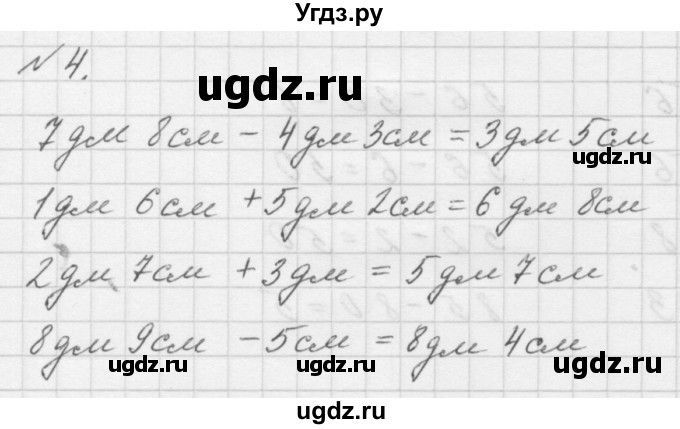 Угдз.ру
N 4.
ugdz.ru
7 дм 8 см - 4 дм 3 см = 3 дм 5 см
ugdz.ru
1 дм 6 см + 5 дм 2 см = 6 дм 8 см
2 дм 7 см + 3 дм = 5 дм 7 см
8 дм 9 см - 5 см = 8 дм 4 см
ugdz.ru ugdz.ru
ugdz.ru